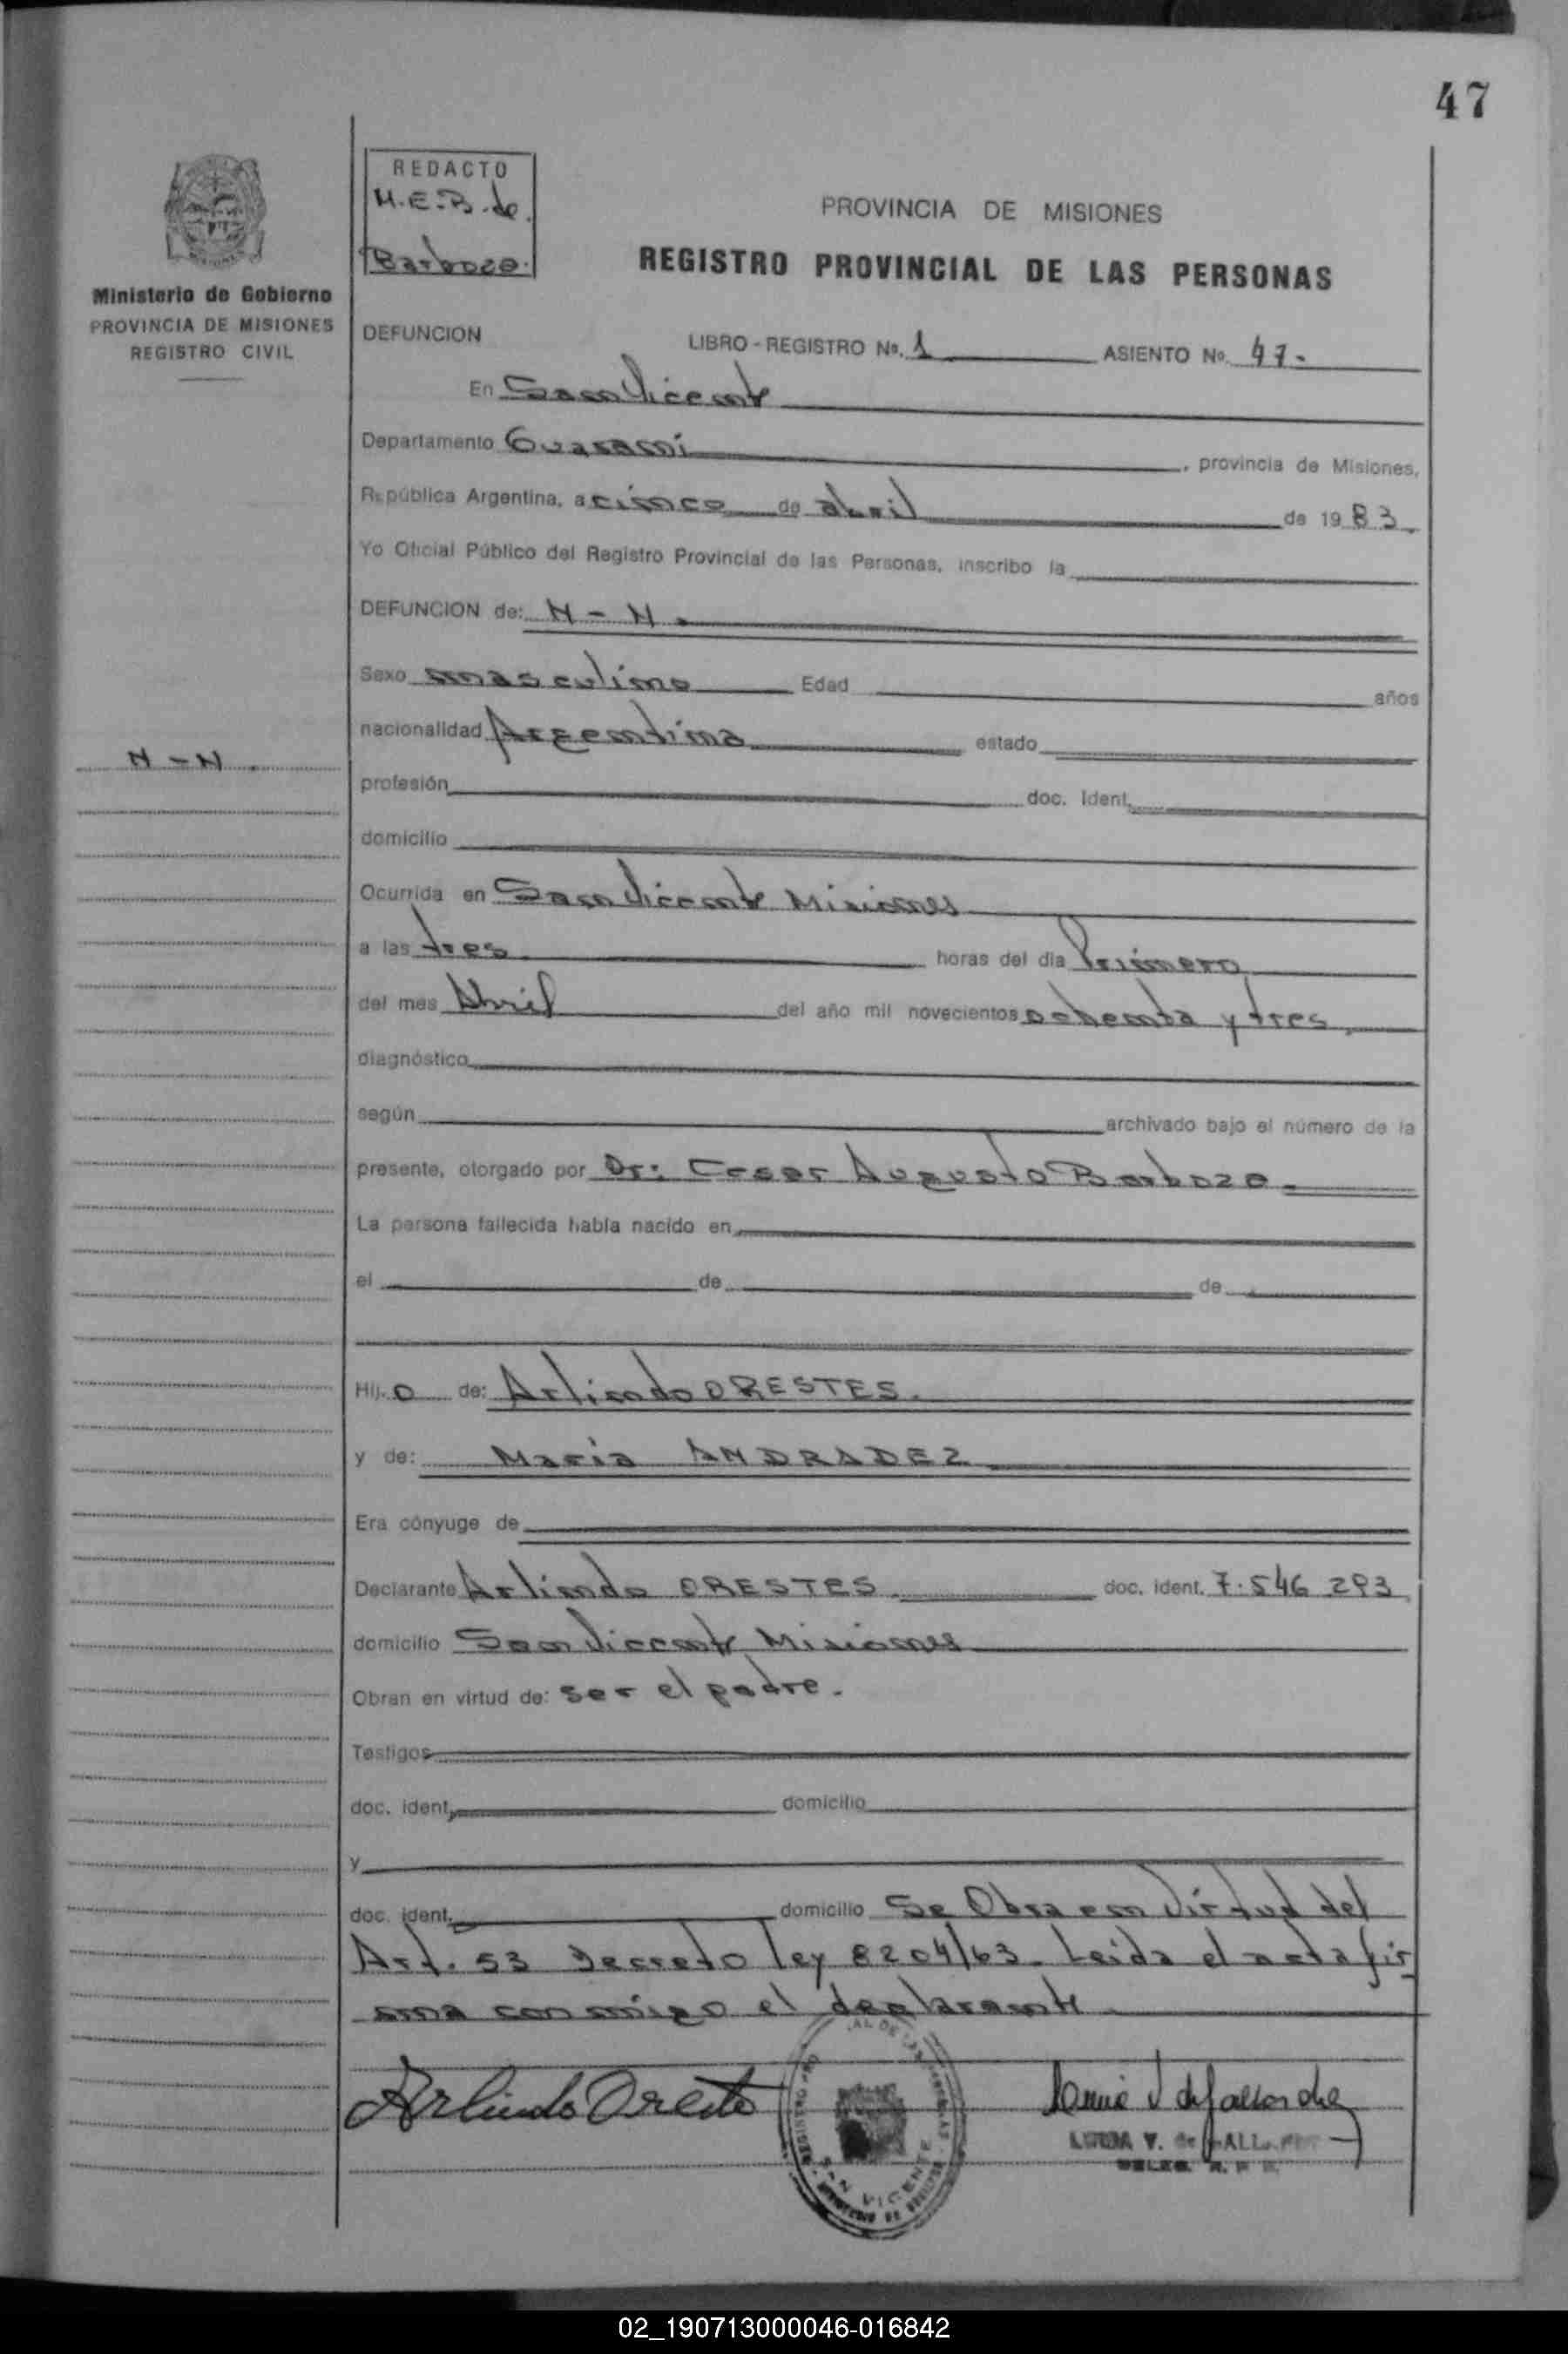 47
REDACTO
M.E.B. de
Barboza.
PROVINCIA DE MISIONES
REGISTRO PROVINCIAL DE LAS PERSONAS
Ministerio de Gobierno
PROVINCIA DE MISIONES
REGISTRO CIVIL
DEFUNCION LIBRO - REGISTRO No. 1 ASIENTO No. 47.
En San Vicente
Departamento Guaraní, provincia de Misiones,
República Argentina, a cinco de abril de 1983.
Yo Oficial Público del Registro Provincial de las Personas, inscribo la
DEFUNCION de: N - N.
Sexo masculino Edad años
nacionalidad Argentina estado
N - N.
profesión doc. Ident.
domicilio
Ocurrida en San Vicente Misiones
a las tres horas del día Primero
del mes Abril del año mil novecientos ochenta y tres.
diagnóstico
según archivado bajo el número de la
presente, otorgado por Dr: Cesar Augusto Barboza.
La persona fallecida había nacido en
el de de
Hij o de: Arlindo ORESTES.
y de: Maria ANDRADEZ
Era cónyuge de
Declarante Arlindo ORESTES doc. ident. 7.546 293
domicilio San Vicente Misiones
Obran en virtud de: ser el padre.
Testigos
doc. ident. domicilio
y
doc. ident. domicilio Se Obra en Virtud del
Art. 53 Decreto ley 8204/63. Leida el acta fir
ma conmigo el declarante.
Arlindo Oreste
SAN VICENTE
V. de
02_190713000046-016842